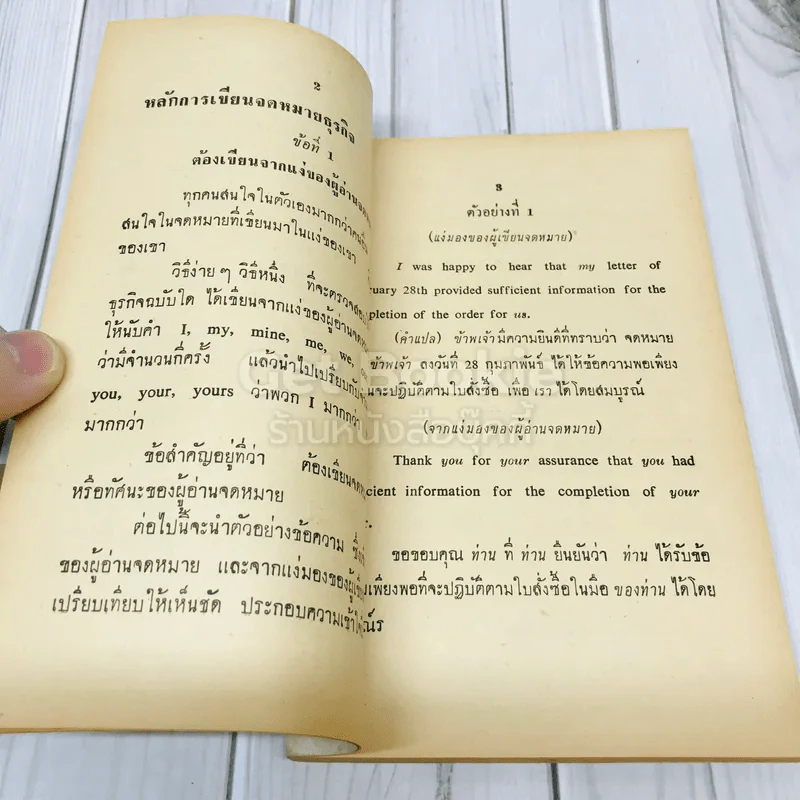 2
หลักการเขียนจดหมายธุรกิจ
ข้อที่ 1
ต้องเขียนจากแง่ของผู้อ่านจด
ทุกคนสนใจในตัวเองมากกว่าคนอื่น
สนใจในจดหมายที่เขียนมาในแง่ของเขา
ของเขา
วิธีง่ายๆ วิธีหนึ่ง ที่จะตรวจสอบ
ธุรกิจฉบับใด ได้เขียนจากแง่ของผู้อ่านจด
ให้นับคำ I, my, mine, me, we,
ว่ามีจำนวนกี่ครั้ง แล้วนำไปเปรียบกับ
you, your, yours ว่าพวก I มากกว่า
มากกว่า
ข้อสำคัญอยู่ที่ว่า ต้องเขียนจาก
หรือทัศนะของผู้อ่านจดหมาย
ต่อไปนี้จะนำตัวอย่างข้อความ ซึ่ง
ของผู้อ่านจดหมาย และจากแง่มองของผู้เขียน
เปรียบเทียบให้เห็นชัด ประกอบความเข้าใจ
3
ตัวอย่างที่ 1
(แง่มองของผู้เขียนจดหมาย)
I was happy to hear that my letter of
uary 28th provided sufficient information for the
pletion of the order for us.
(คำแปล) ข้าพเจ้ามีความยินดีที่ทราบว่า จดหมาย
ข้าพเจ้า ลงวันที่ 28 กุมภาพันธ์ ได้ให้ข้อความพอเพียง
นจะปฏิบัติตามใบสั่งซื้อ เพื่อ เรา ได้โดยสมบูรณ์
(จากแง่มองของผู้อ่านจดหมาย)
Thank you for your assurance that you had
cient information for the completion of your
r.
ขอขอบคุณ ท่าน ที่ ท่าน ยืนยันว่า ท่าน ได้รับข้อ
เพียงพอที่จะปฏิบัติตามใบสั่งซื้อในมือ ของท่าน ได้โดย
ณ์ร
Get Bookie
ร้านหนังสือบุ๊คกี้